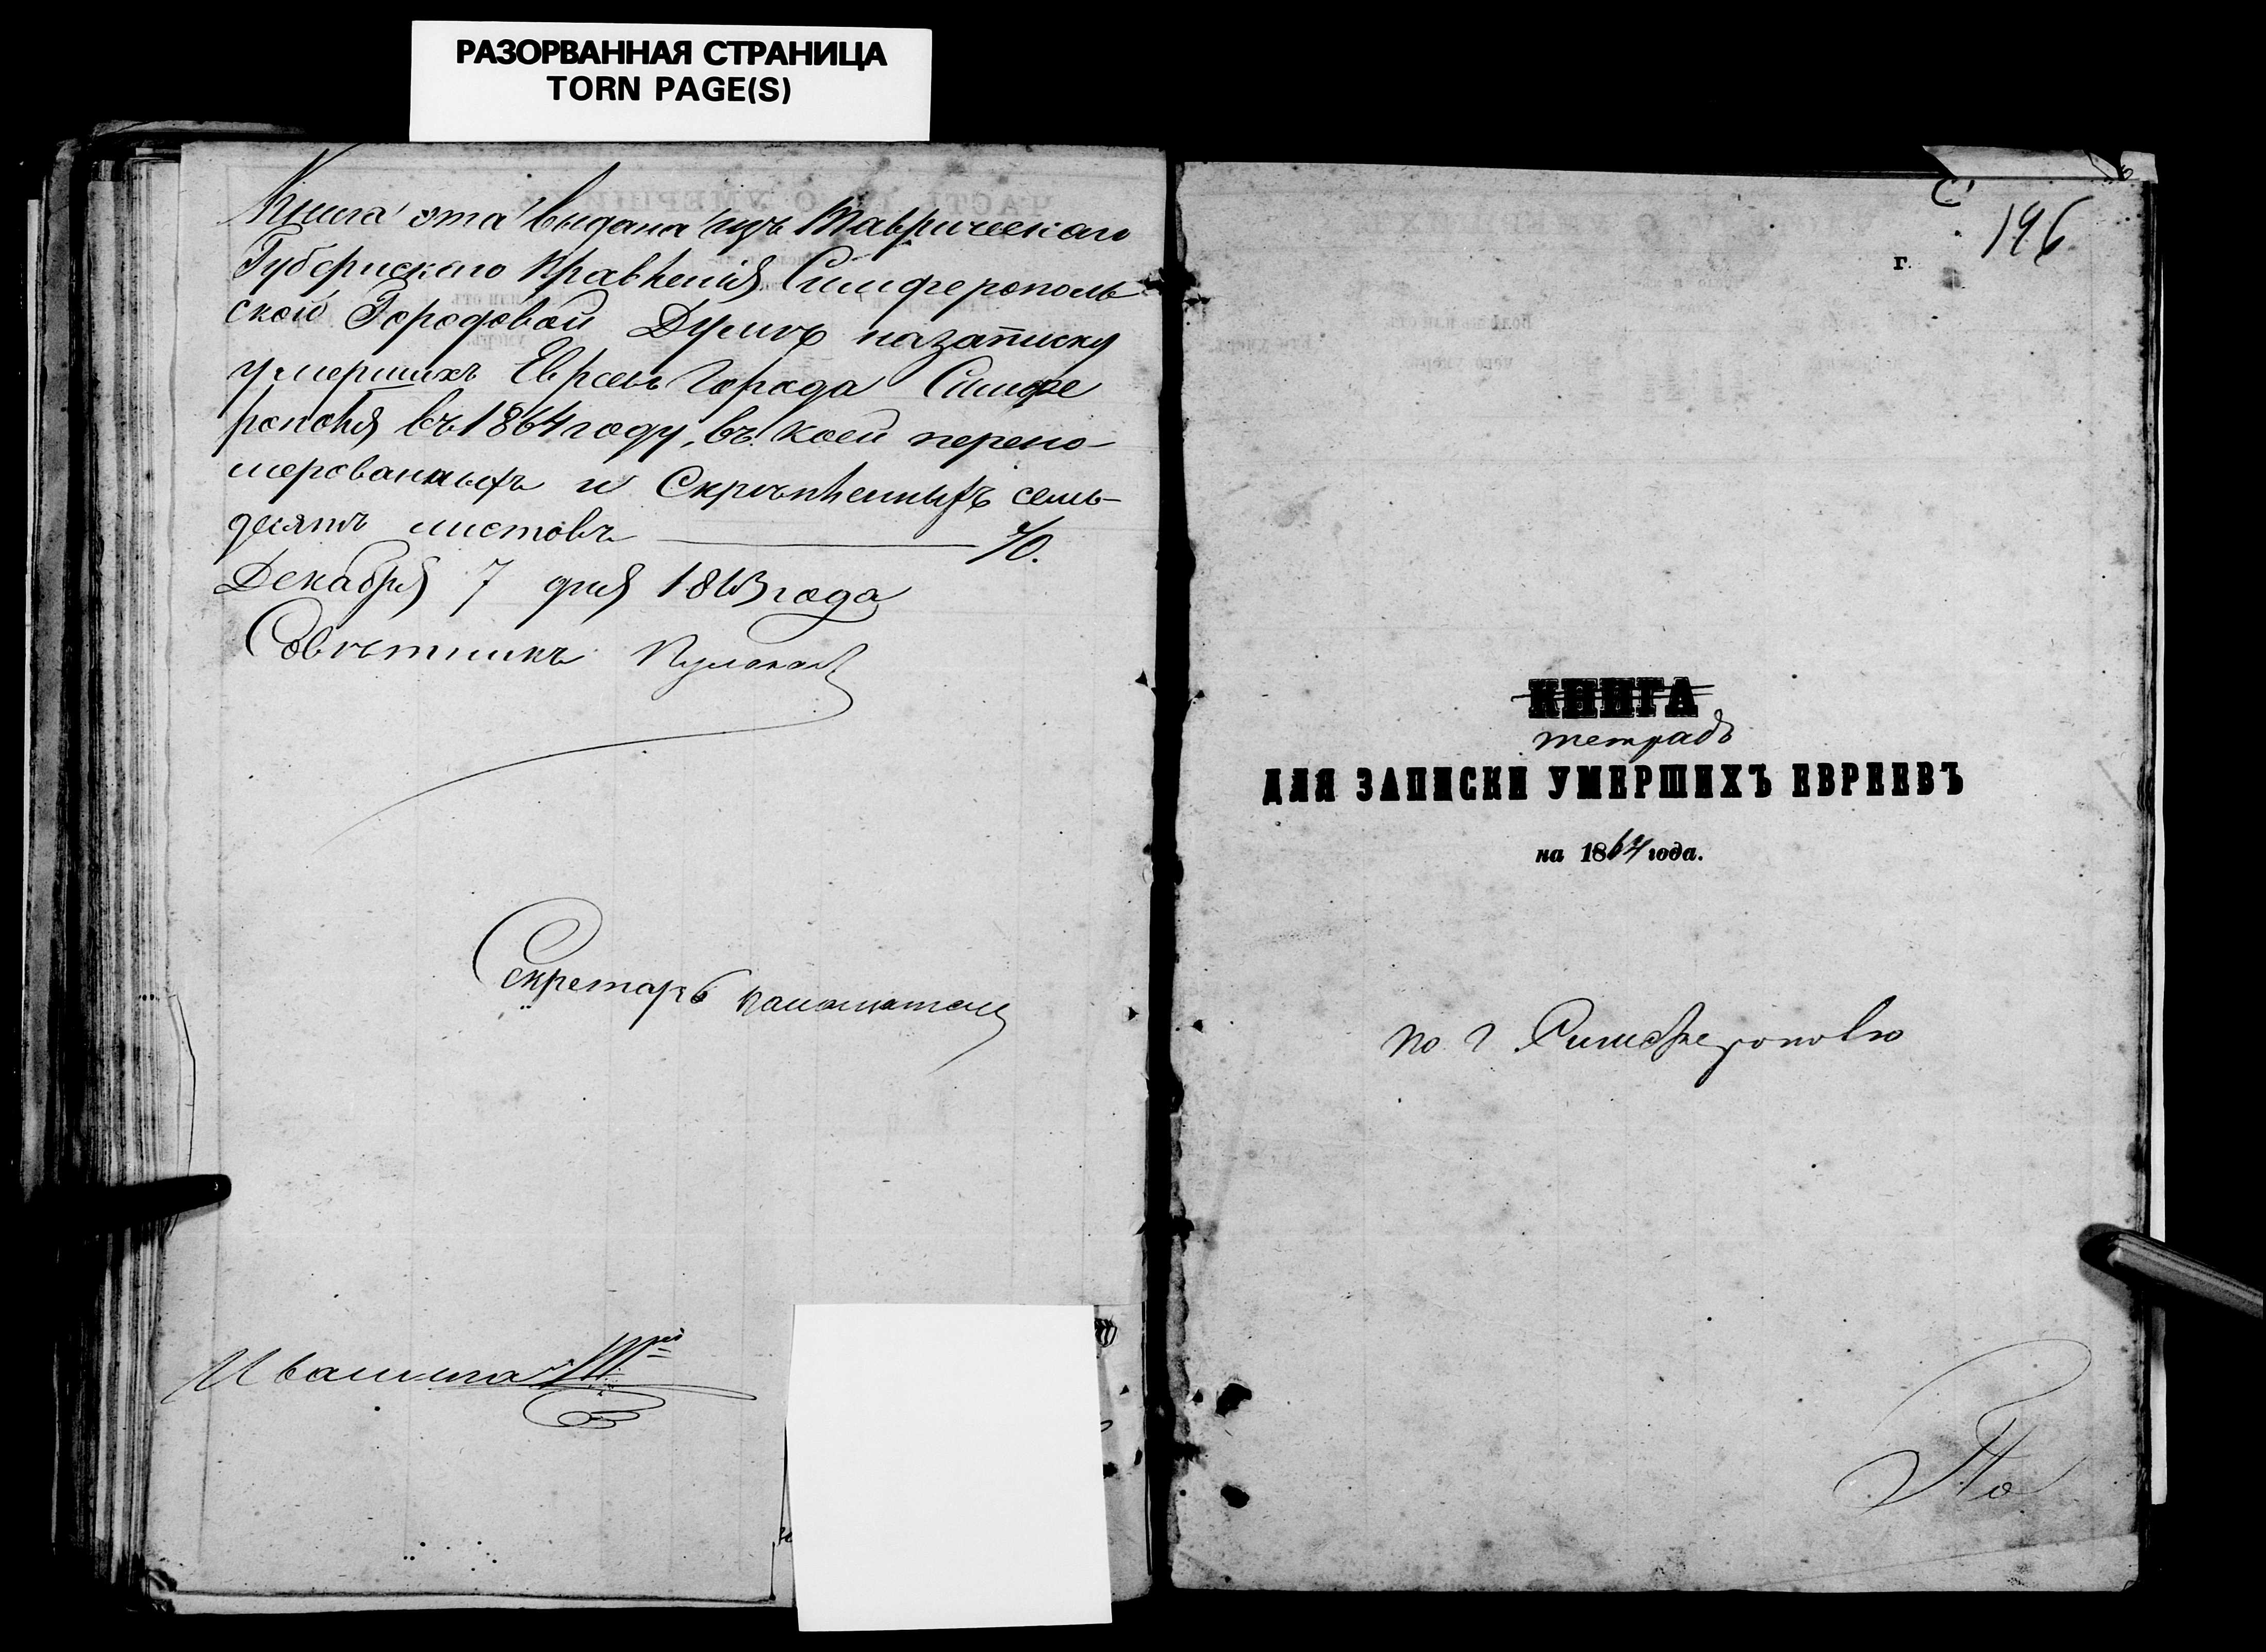 РАЗОРВАННАЯ СТРАНИЦА
TORN PAGE(S)
Книга эта выдана изъ Таврическаго
Губернскаго Правленія Симферополь
ской Городовой Думѣ на записку
умершихъ Евреевъ Города Симфе
рополя въ 1864 году, въ коей перено-
мерованныхъ и Скрѣпленныхъ семь-
десятъ листовъ — 70.
Декабря 7 дня 1863 года
Совѣтникъ
Секретарь
196
г.
КНИГА
тетрадь
ДЛЯ ЗАПИСКИ УМЕРШИХЪ ЕВРЕЕВЪ
на 1864 года.
по г. Симферополю
По